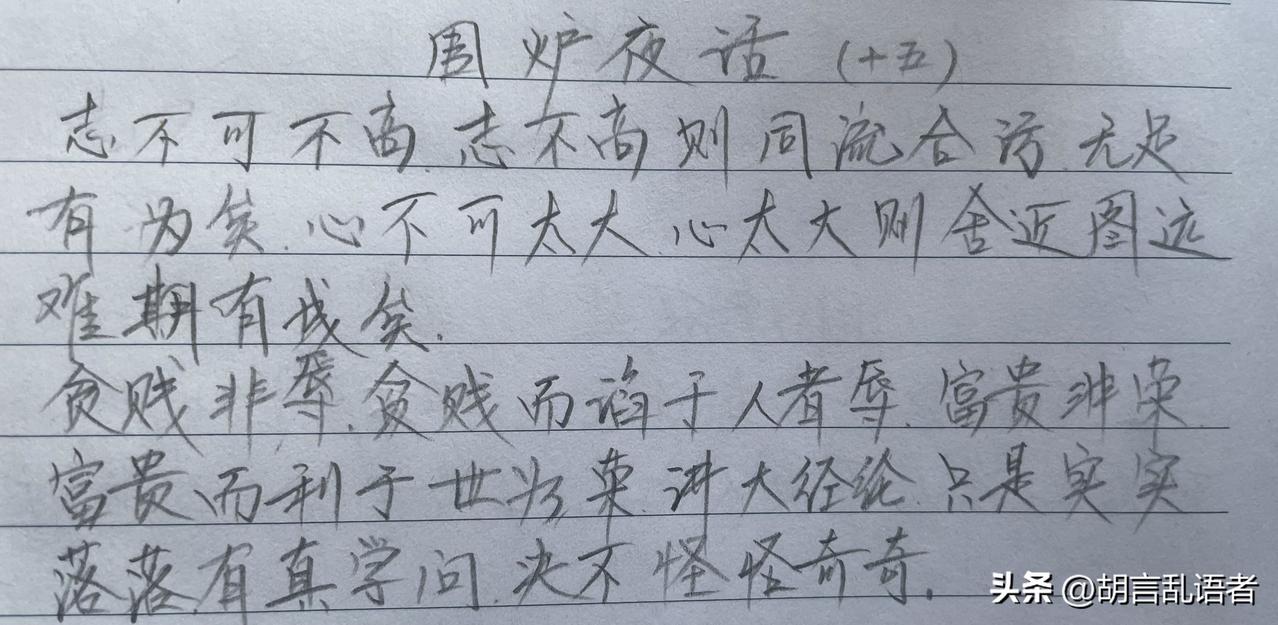 围炉夜话（十五）
志不可不高.志不高则同流合污.无足
有为矣.心不可太大.心太大则舍近图远
难期有成矣.
贫贱非辱.贫贱而谄于人者辱.富贵非荣
富贵而利于世为荣.讲大经纶.只是实实
落落.有真学问.决不怪怪奇奇.
头条 @胡言乱语者